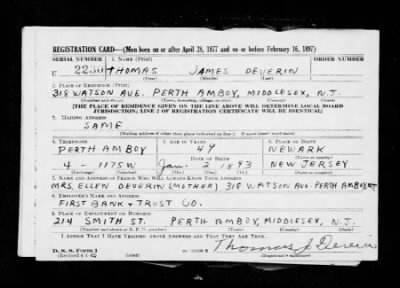 REGISTRATION CARD—(Men born on or after April 28, 1877 and on or before February 16, 1897)
SERIAL NUMBER 1. NAME (Print) ORDER NUMBER
U THOMAS JAMES DEVERIN
(First) (Middle) (Last)
2. PLACE OF RESIDENCE (Print)
318 WATSON AVE. PERTH AMBOY, MIDDLESEX, N.J.
(Number and street) (Town, township, village, or city) (County) (State)
[THE PLACE OF RESIDENCE GIVEN ON THE LINE ABOVE WILL DETERMINE LOCAL BOARD
JURISDICTION; LINE 2 OF REGISTRATION CERTIFICATE WILL BE IDENTICAL]
3. MAILING ADDRESS
SAME
(Mailing address if other than place indicated on line 2. If same insert word same)
4. TELEPHONE 5. AGE IN YEARS 6. PLACE OF BIRTH
PERTH AMBOY 49 NEWARK
DATE OF BIRTH (Town or county)
4 - 1175W Jan. 2 1893 NEW JERSEY
(Exchange) (Number) (Mo.) (Day) (Yr.) (State or country)
7. NAME AND ADDRESS OF PERSON WHO WILL ALWAYS KNOW YOUR ADDRESS
MRS. ELLEN DEVERIN (MOTHER) 318 WATSON AVE. PERTH AMBOY NJ
8. EMPLOYER'S NAME AND ADDRESS
FIRST BANK & TRUST CO.
9. PLACE OF EMPLOYMENT OR BUSINESS
214 SMITH ST. PERTH AMBOY, MIDDLESEX, N.J.
(Number and street or R. F. D. number) (Town) (County) (State)
I AFFIRM THAT I HAVE VERIFIED ABOVE ANSWERS AND THAT THEY ARE TRUE.
D. S. S. Form 1 Thomas J Deverin
(Registrant's signature)